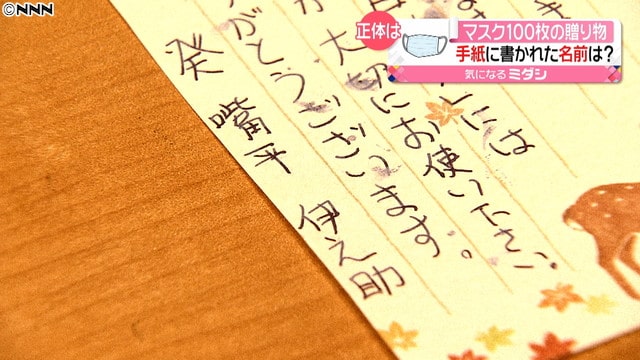 ©NNN
正体は
マスク100枚の贈り物
手紙に書かれた名前は?
気になるミダシ
には
大切にお使い下さい
がとうございます。
発 嘴平 伊之助